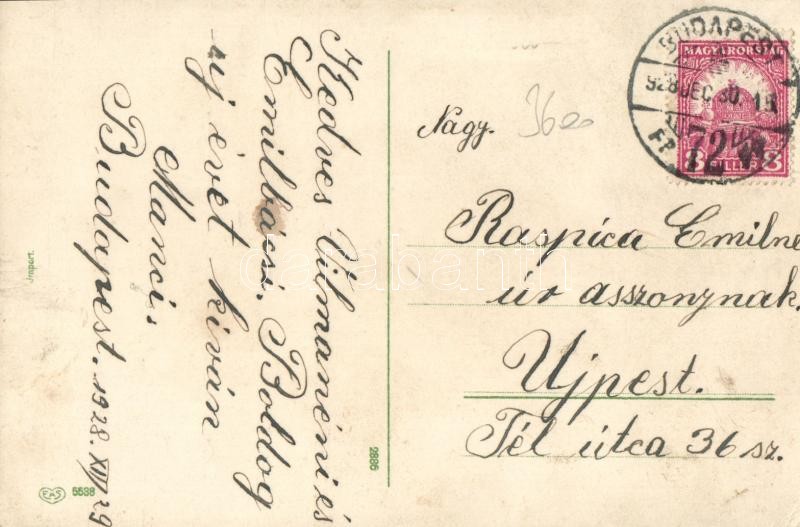 Kedves Vilmanéni és
Emilbácsi. Boldog
uj évet kíván
Manci.
Budapest. 1928. XII/29
Import.
EAS 5538
9886
BUDAPEST
928 DEC 30
72
MAGYARORSZÁG
8 FILLÉR 8
36
Nagy.
Raspica Emilne
úr asszonynak.
Ujpest.
Tél útca 36 sz.
darabanth